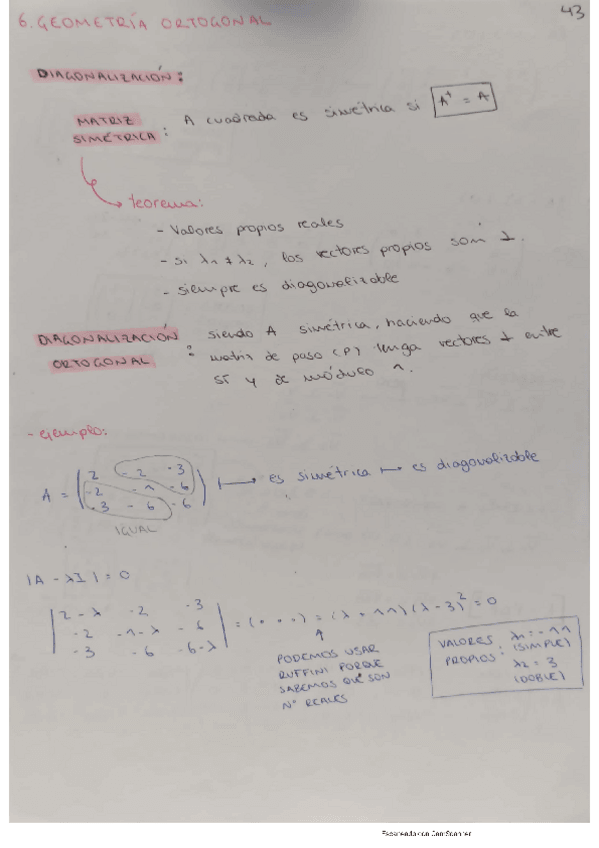 43
6. GEOMETRÍA ORTOGONAL
DIAGONALIZACIÓN:
MATRIZ SIMÉTRICA: A cuadrada es simétrica si A^t = A
teorema:
- Valores propios reales
- si λ1 ≠ λ2, los vectores propios son ⊥.
- siempre es diagonalizable
DIAGONALIZACIÓN ORTOGONAL: siendo A simétrica, haciendo que la
matriz de paso (P) tenga vectores ⊥ entre
sí y de módulo 1.
- ejemplo:
A = ( 2 -2 -3
-2 -1 -6
-3 -6 -6 ) ↦ es simétrica ↦ es diagonalizable
IGUAL
|A - λI| = 0
| 2-λ -2 -3
-2 -1-λ -6
-3 -6 -6-λ | = (···) = (λ + 11)(λ - 3)² = 0
PODEMOS USAR
RUFFINI PORQUE
SABEMOS QUE SON
Nº REALES
VALORES PROPIOS: λ1 = -11
(SIMPLE)
λ2 = 3
(DOBLE)
Escaneado con CamScanner